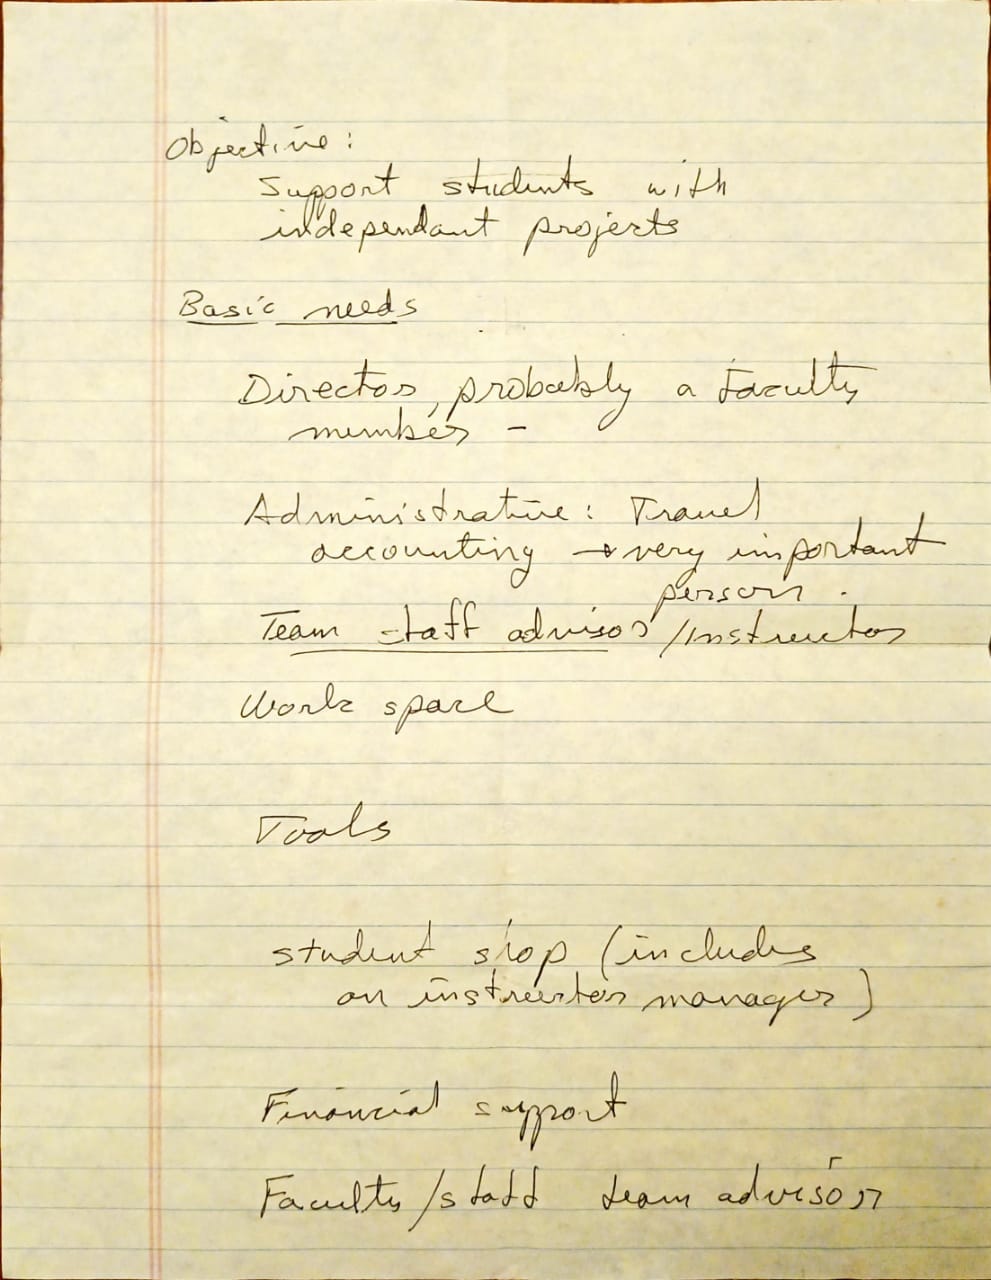 Objective:
Support students with
independant projects
Basic needs
Director, probably a faculty
member -
Administrative: Travel
accounting → very important
person.
Team staff advisor/instructor
Work space
Tools
student shop (includes
an instructor manager)
Financial support
Faculty/staff team advisor